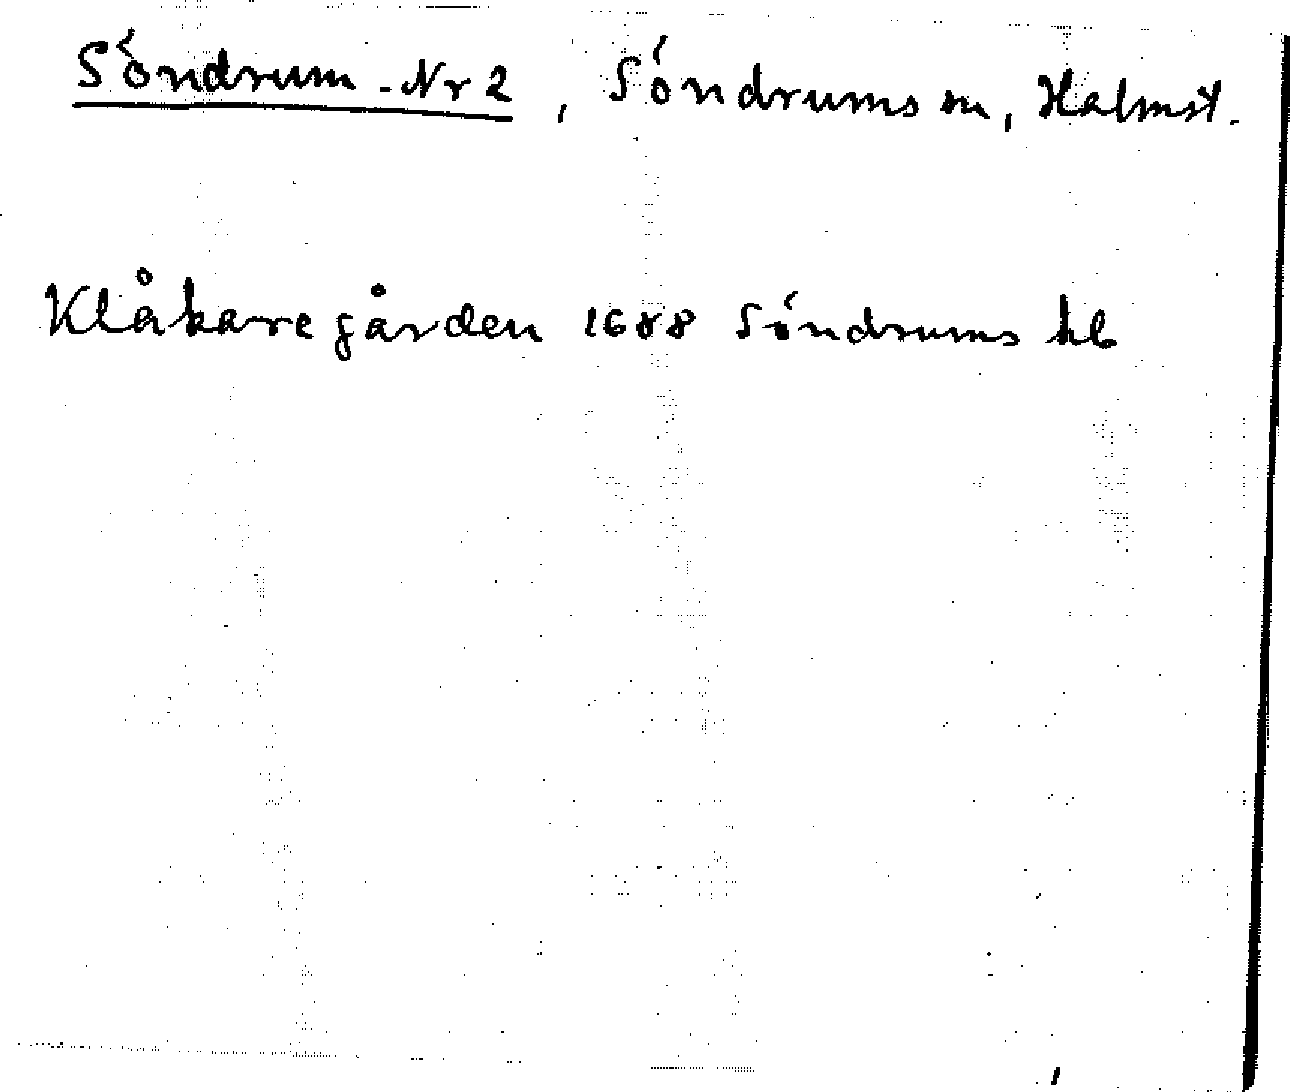 Söndrum Nr 2, Söndrums sn, Halmst.
Klåkaregården 1688 Söndrums kb